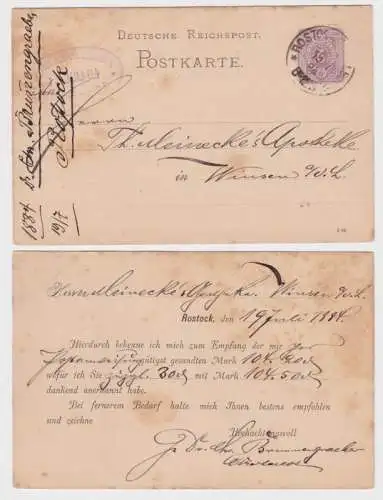 DEUTSCHE REICHSPOST.
POSTKARTE.
ROSTOCK
Herrn
Th. Meinecke's Apotheke
in Winsen a/d. L.
1884 Dr. Chr. Brunnengraeber
19/7 Rostock
Herrn Meinecke's Winsen a/d. L.
Rostock, den 19 Juli 1884.
Hierdurch bekenne ich mich zum Empfang der mir per
Postanweisung gütigst gesandten Mark 104.20
wofür ich Sie zuzgl. 30 mit Mark 104.50
dankend anerkannt habe.
Bei fernerem Bedarf halte mich Ihnen bestens empfohlen
und zeichne
Hochachtungsvoll
Dr. Chr. Brunnengraeber